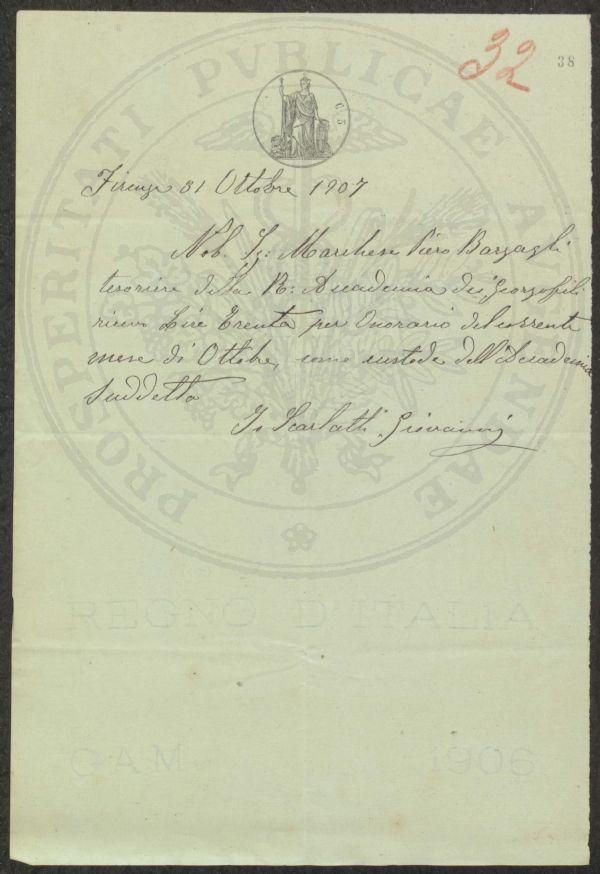 32
38
C. 5
PROSPERITATI PVBLICAE AVGENDAE
Firenze 31 Ottobre 1907
Nob. Sg: Marchese Piero Bargagli
tesoriere della R: Accademia dei Georgofili
ricevo Lire Trenta per Onorario del corrente
mese di Ottobre, come custode dell'Accademia
Suddetta
Io Scarlatti Giovanni
REGNO D'ITALIA
GAM 1906